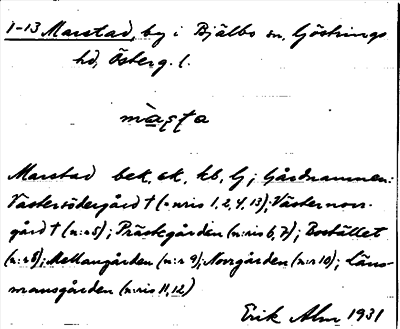 1-13 Marstad, by i Bjälbo sn, Göstrings
hd, Österg. l.
Marstad bek. ek, kb, G; Gårdnamnen:
Västersödergård † (n:ris 1, 2, 4, 13); Västernorr-
gård † (n:o 5); Prästgården (n:ris 6, 7); Bostället
(n:r 8); Mellangården (n:r 9); Norrgården (n:r 10); Läns-
mansgården (n:ris 11, 12)
Erik Alm 1931